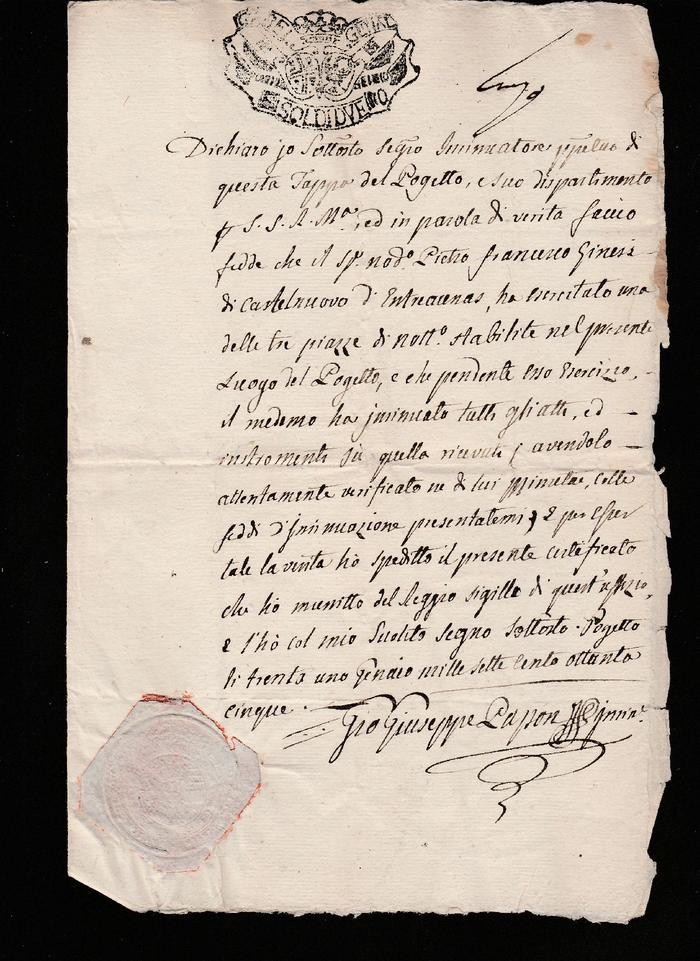 SOLDI DUE
Dichiaro jo Sottosto Segro Insinuatore di
questa Tappa del Pogetto, e suo dispartimento
S. S. R. Ma, ed in parola di verita faccio
fedde che il Sr. nodo. Pietro Francesco Ginesi
di Castelnuovo d'Entracenas, ha esercitato una
delle tre piazze di notto. stabilite nel presente
Luogo del Pogetto, e che pendente esso Esercizio,
il medemo ha jnsinuato tutti gli atti, ed
instromenti quella ricevuti avendolo
attentamente verificato di lui minutae, colle
feddi d'jnsinuazione presentatemi, e per esser
tale la verita hò spedito il presente certificato
che hò munitto del Reggio sigillo di quest'uffizio,
e l'hò col mio Suolito segno Sottosto. Pogetto
li trenta uno Genaio mille sette Cento ottanta
cinque.
Gio Giuseppe Papon jnsinr.